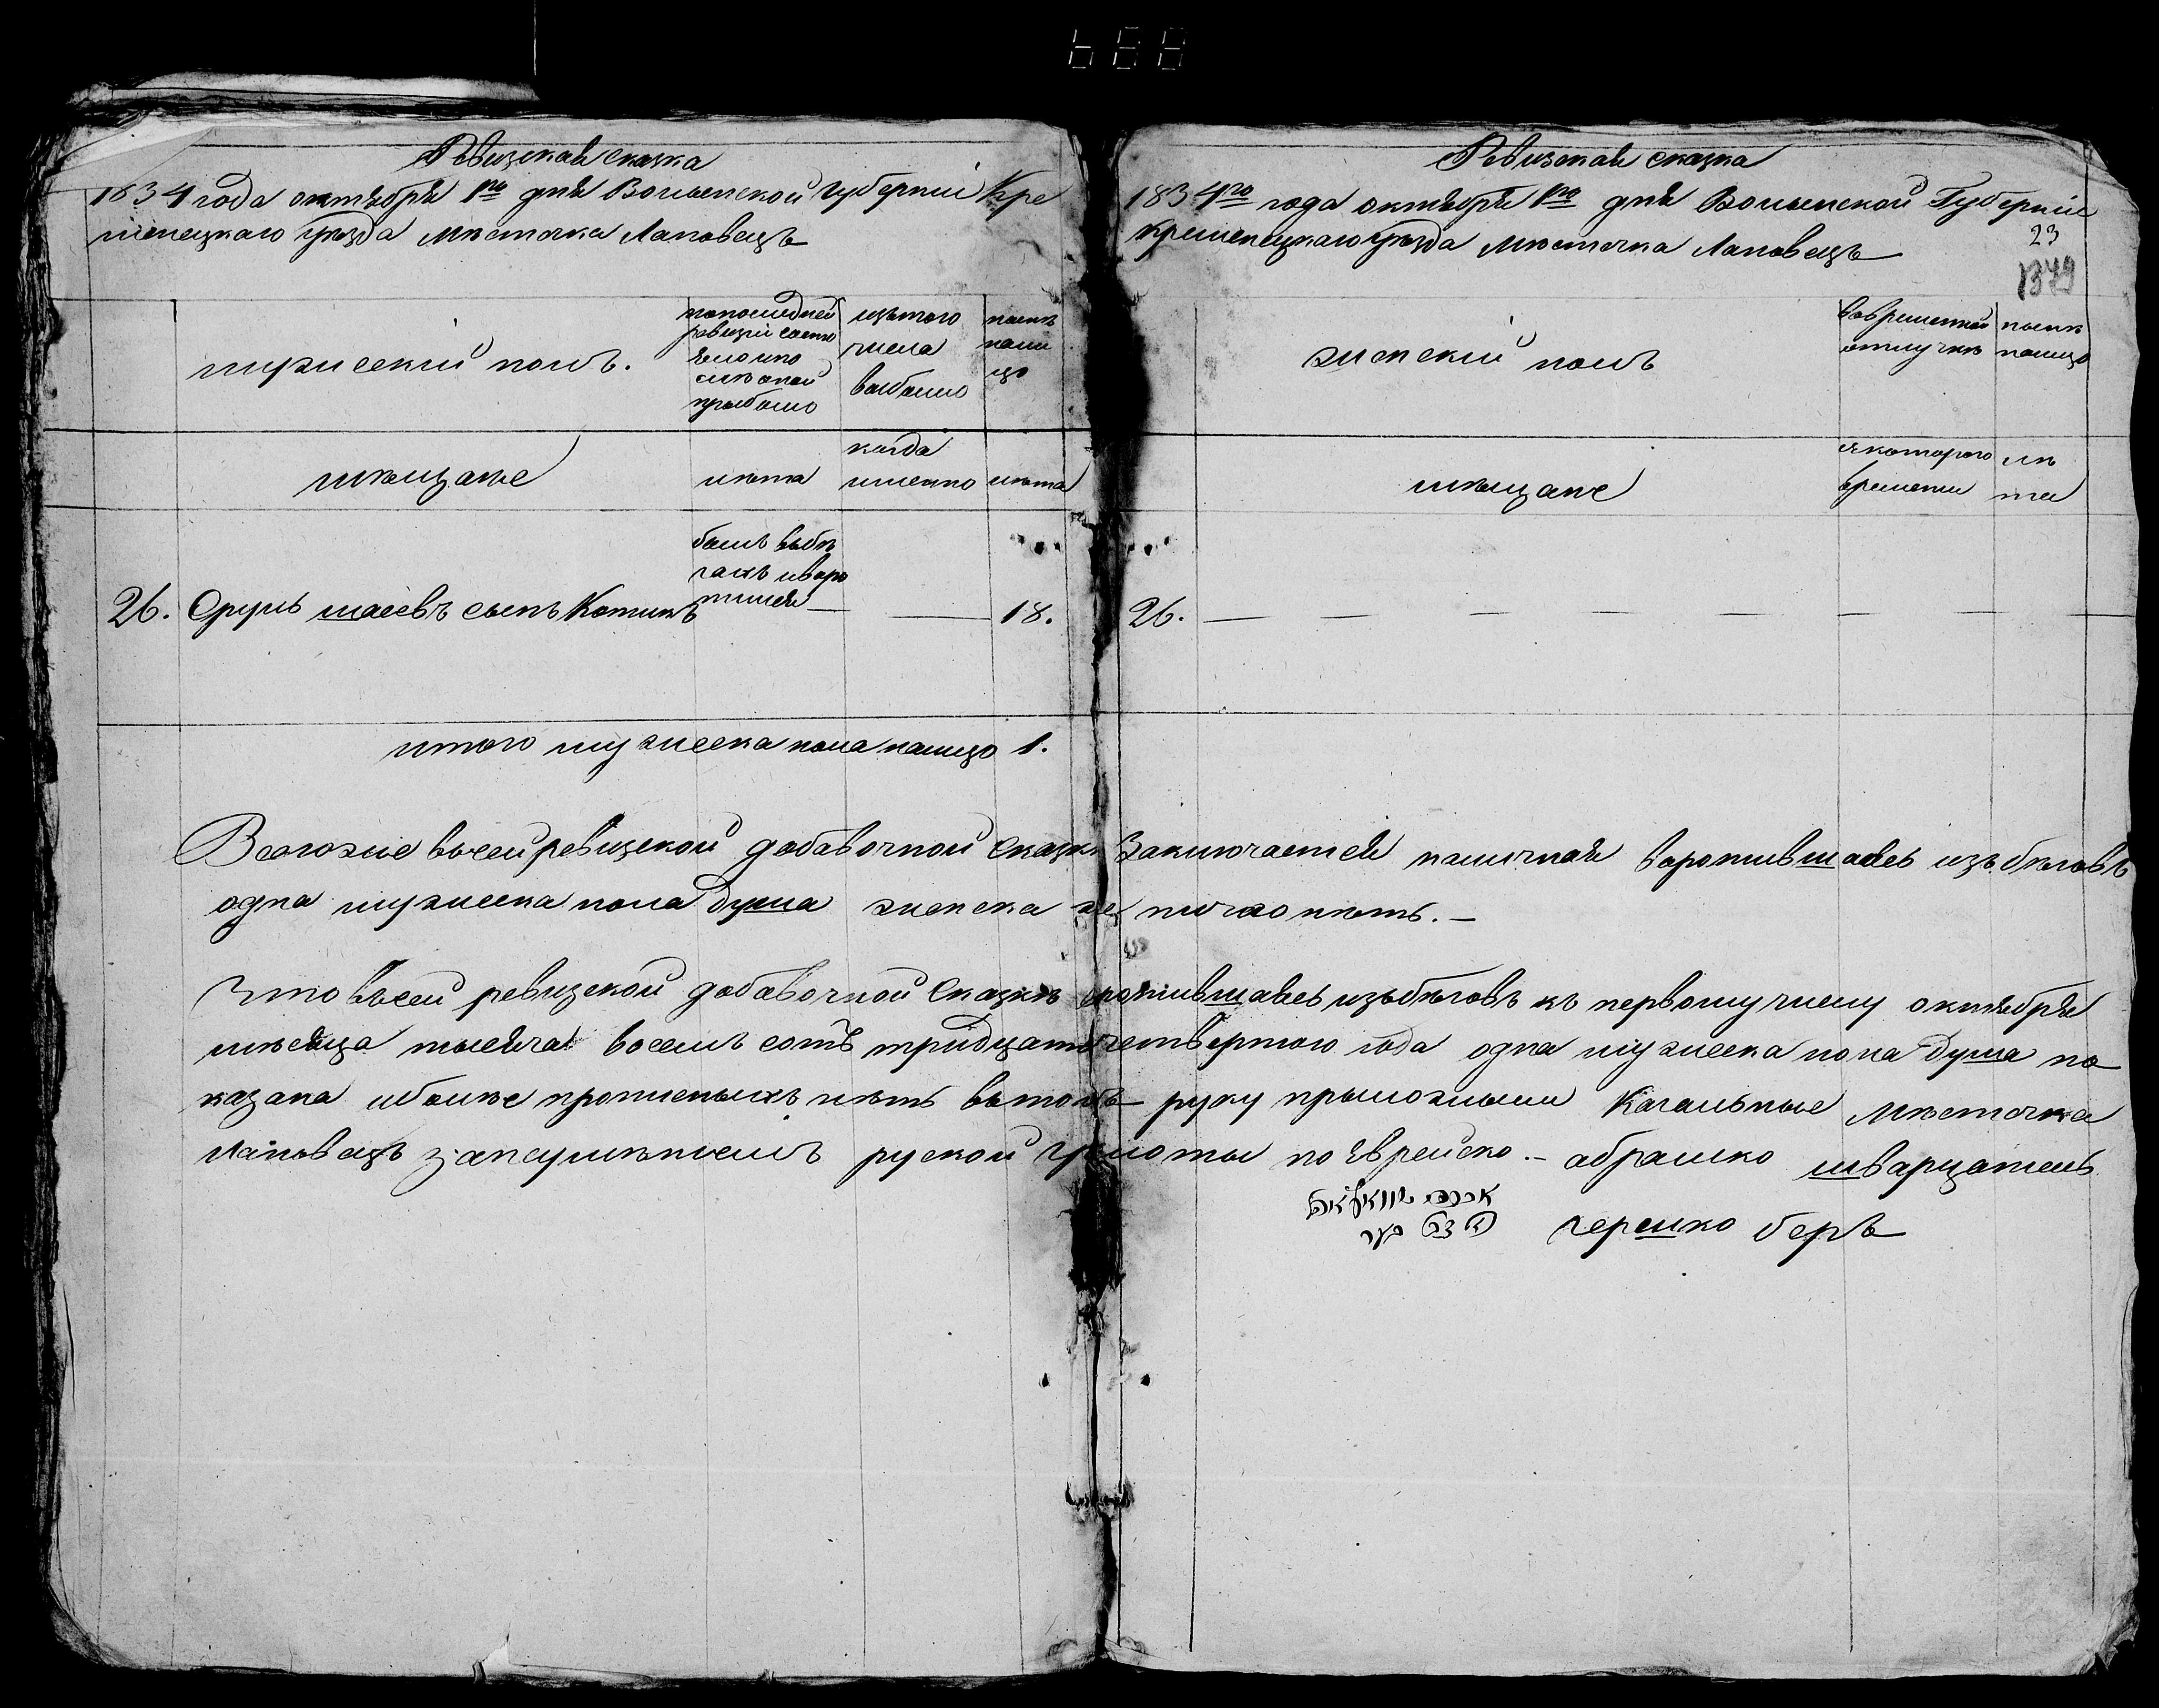 Ревизская сказка
1834 года октября 1го дня Волынской губернии Кре
менецкаго уезда Местечка Лановецъ
мужеский полъ.
попоследней
ревизiи состо
яло ипо
оной
прыбыло
изътого
числа
выбыло
ныне
нали
цо
мещане
лета
когда
именно
лета
былъ вьбе
гахъ иворо
тился
26. Сруль шаевъ сынъ Котикъ — — 18.
итого мужеска пола налицо 1.
Ревизская сказка
1834го года октября 1го дня Волынской Губернiи
кременецкаго уезда Местечка Лановецъ
23
1379
женскiй полъ
вовременной
отлучке
ныне
налицо
мещане
скоторого
времени
ле
та
26. — — — — — — —
Всегоже вьсей ревизской добавочной сказке Заключается наличная воротившаясь изъбеговъ
одна мужеска пола душа женска же ничого нетъ. —
Что вьсей ревизской добавочной сказке воротившаясь изъбеговъ къ первому числу октября
месяца тысяча восемь сотъ тридцать четвертого года одна мужеска пола душа по
казана иболие прописныхъ нетъ вьтомъ руку прыложыли Кагальные Местечка
Лановецъ занеуменiемъ руской грамоты по Еврейско. — абрамко шварцапель
гершко беръ